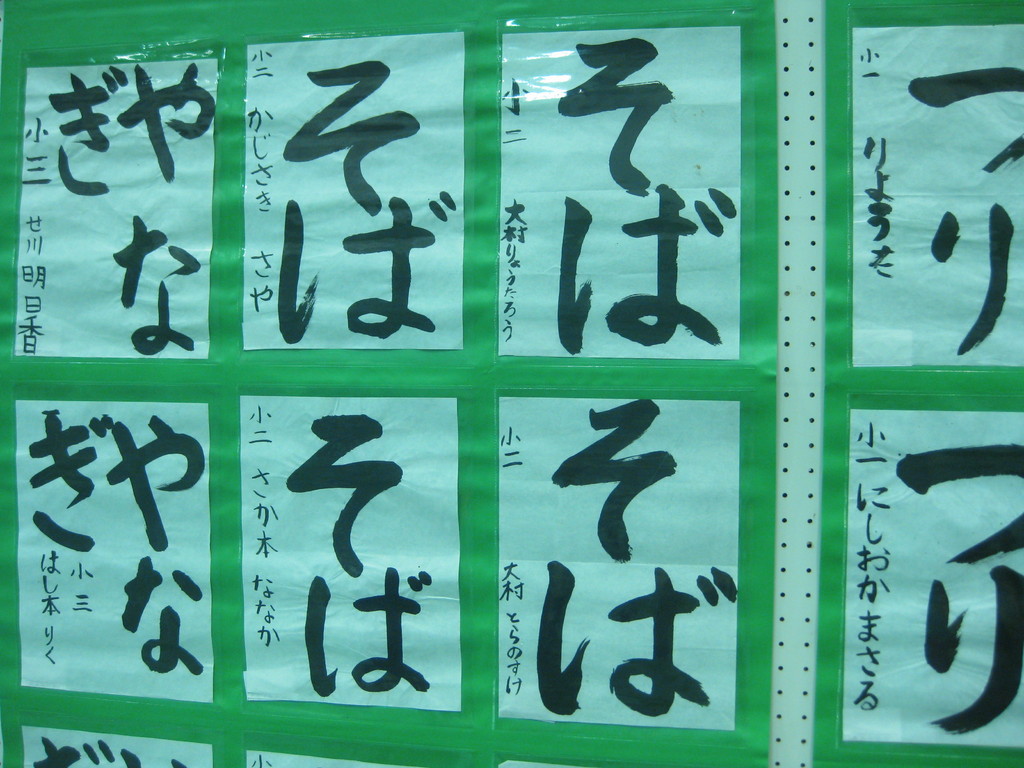 やな
ぎ
小三
せ川明日香
そば
小二
かじさき さや
そば
小二
大村りょうたろう
つり
小一
りょうた
やな
ぎ
小三
はし本りく
そば
小二
さか本 ななか
そば
小二
大村 とらのすけ
つり
小一
にしおかまさる